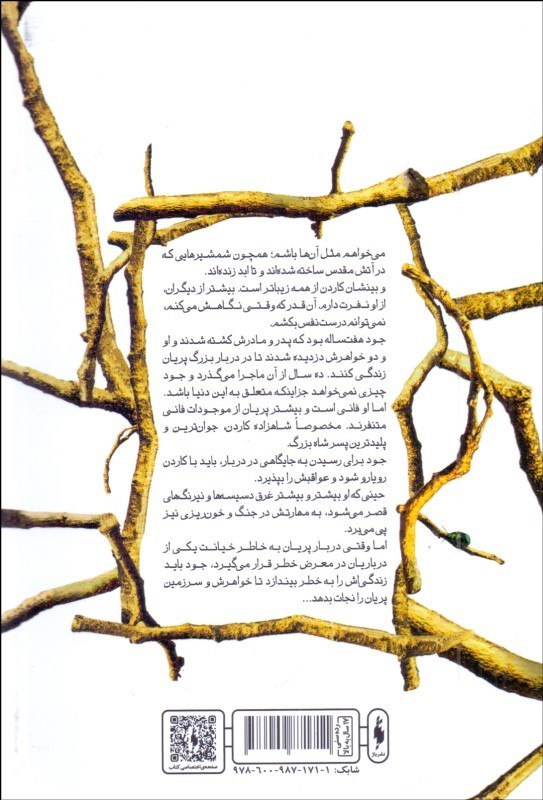 می‌خواهم مثل آن‌ها باشم؛ همچون شمشیرهایی که
در آتش مقدس ساخته شده‌اند و تا ابد زنده‌اند.
و بینشان کاردن از همه زیباتر است. بیشتر از دیگران،
از او نفرت دارم. آن قدر که وقتی نگاهش می‌کنم،
نمی‌توانم درست نفس بکشم.
جود هفت‌ساله بود که پدر و مادرش کشته شدند و او
و دو خواهرش دزدیده شدند تا در دربار بزرگ پریان
زندگی کنند. ده سال از آن ماجرا می‌گذرد و جود
چیزی نمی‌خواهد جز اینکه متعلق به این دنیا باشد.
اما او فانی است و بیشتر پریان از موجودات فانی
متنفرند. مخصوصاً شاهزاده کاردن، جوان‌ترین و
پلیدترین پسر شاه بزرگ.
جود برای رسیدن به جایگاهی در دربار، باید با کاردن
رویارو شود و عواقبش را بپذیرد.
حینی که او بیشتر و بیشتر غرق دسیسه‌ها و نیرنگ‌های
قصر می‌شود، به مهارتش در جنگ و خون‌ریزی نیز
پی می‌برد.
اما وقتی دربار پریان به خاطر خیانت یکی از
درباریان در معرض خطر قرار می‌گیرد، جود باید
زندگی‌اش را به خطر بیندازد تا خواهرش و سرزمین
پریان را نجات بدهد...
نشر باژ
رده سنی
۱۷ سال به بالا
صفحه‌ی اختصاصی کتاب
شابک: ۱-۱۷۱-۹۸۷-۶۰۰-۹۷۸